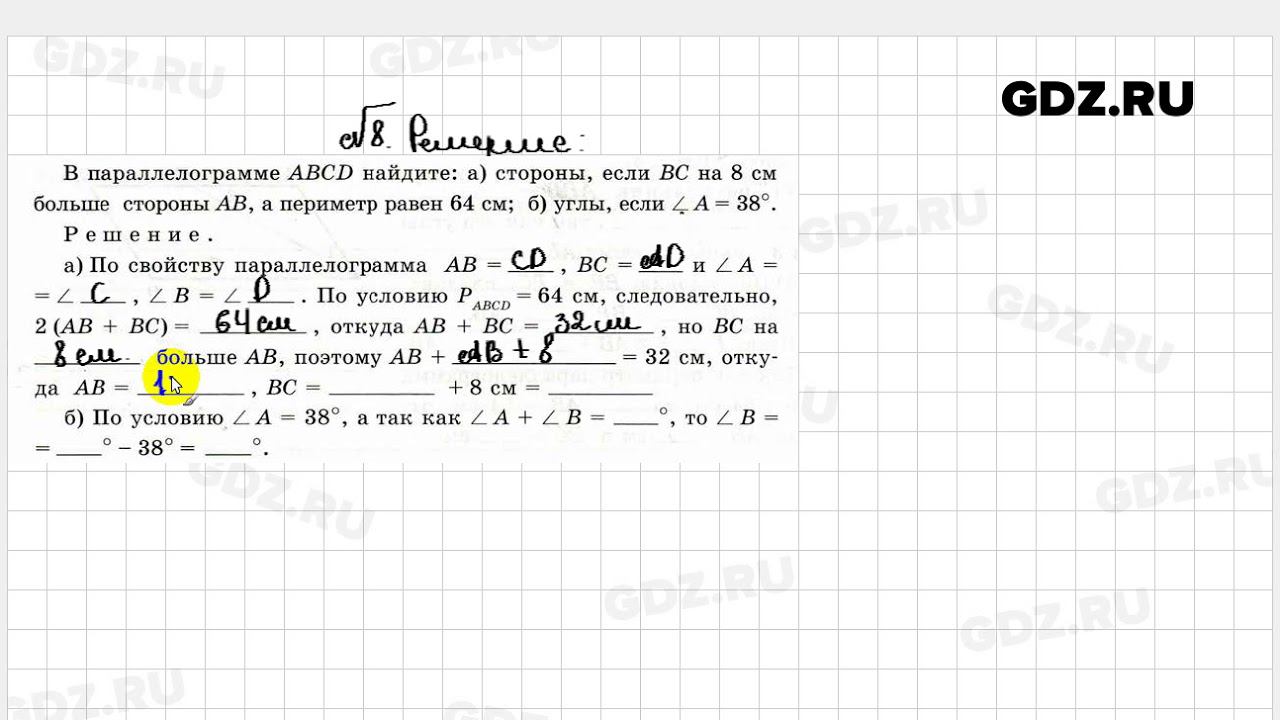 GDZ.RU
GDZ.RU
GDZ.RU
№8. Решение:
В параллелограмме ABCD найдите: а) стороны, если BC на 8 см
больше стороны AB, а периметр равен 64 см; б) углы, если ∠ A = 38°.
GDZ.RU
Решение.
а) По свойству параллелограмма AB = CD, BC = AD и ∠ A =
= ∠ C, ∠ B = ∠ D. По условию P_ABCD = 64 см, следовательно,
GDZ.RU
2 (AB + BC) = 64 см, откуда AB + BC = 32 см, но BC на
8 см больше AB, поэтому AB + AB + 8 = 32 см, отку-
да AB = 1____, BC = ____ + 8 см = ____
б) По условию ∠ A = 38°, а так как ∠ A + ∠ B = ____°, то ∠ B =
= ____° − 38° = ____°.
GDZ.RU
GDZ.RU
GDZ.RU
GDZ.RU
GDZ.RU
GDZ.RU